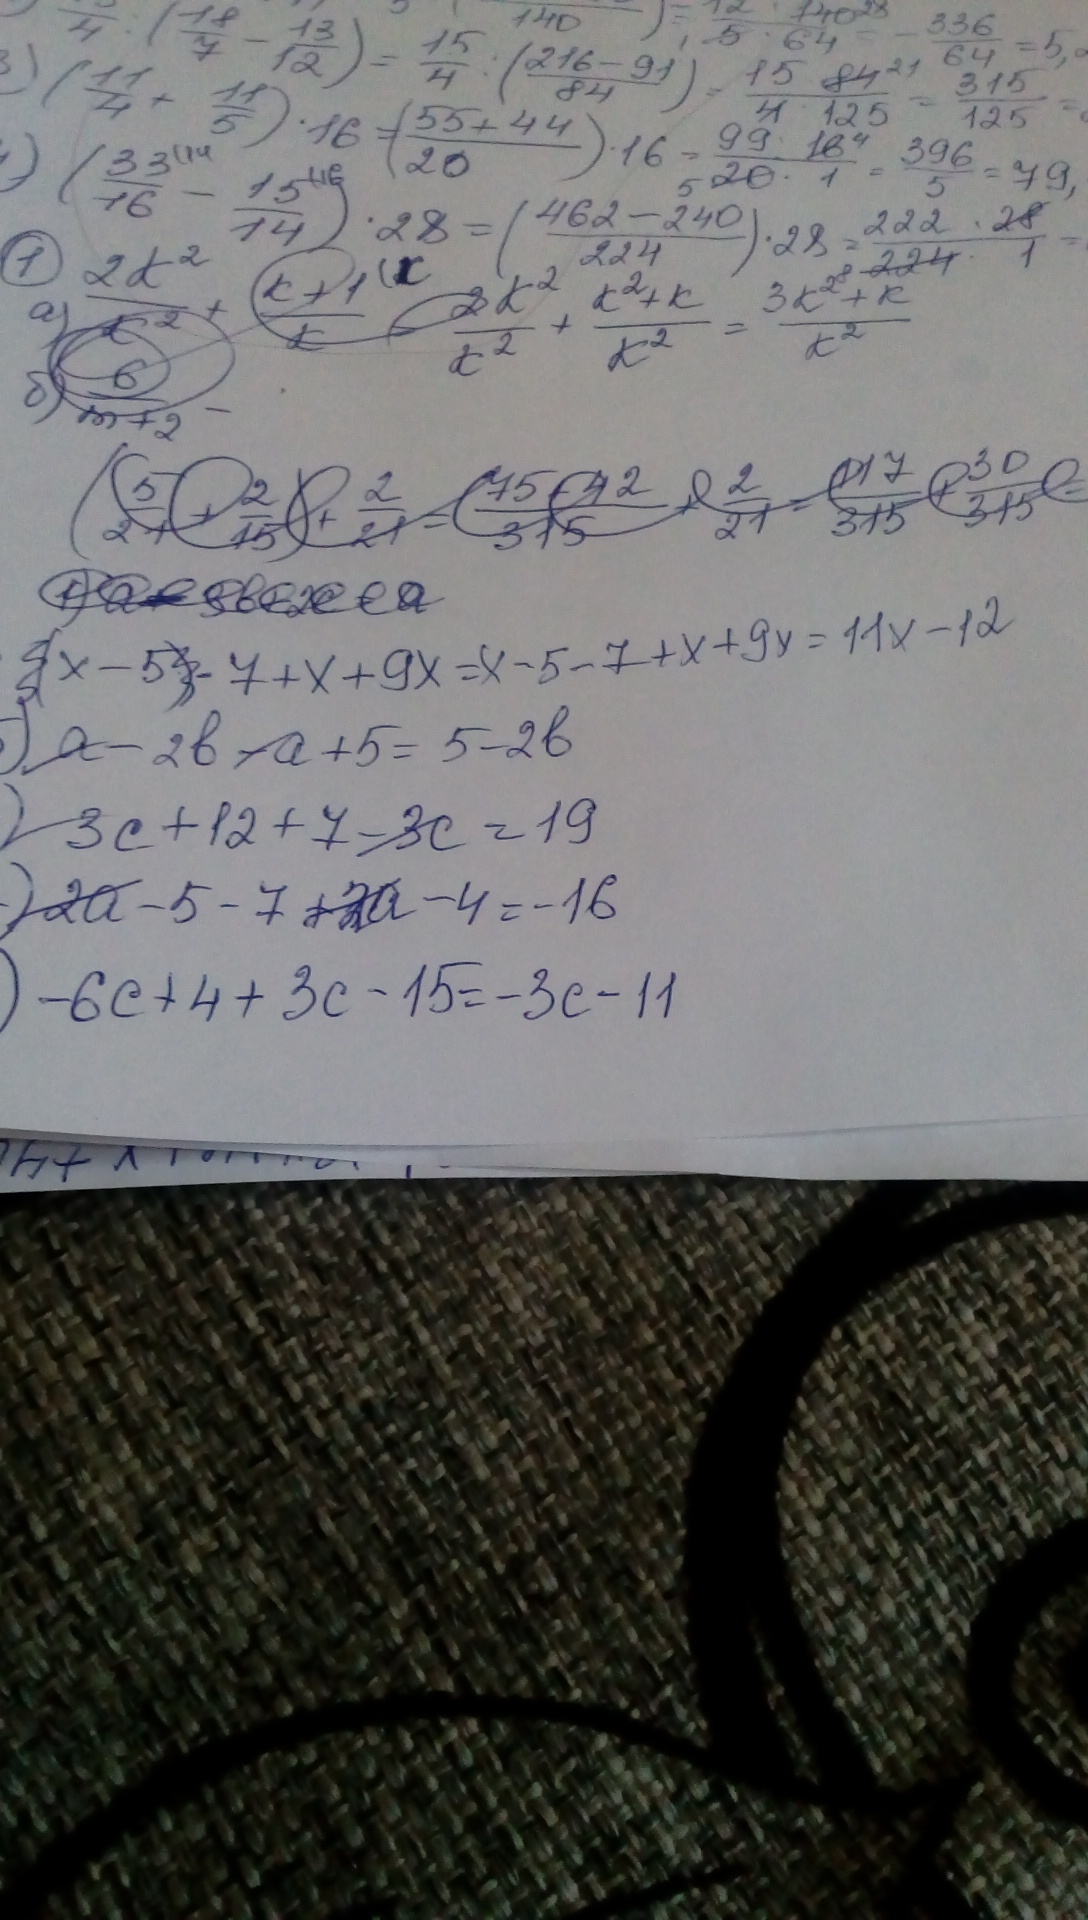 /4 : (18/7 − 13/12) = 15/4 : ((216−91)/84) = (15 · 84²¹)/(4 · 125) = 315/125 =
(11/4 + 11/5) · 16 = ((55+44)/20) · 16 = (99 · 16⁴)/(₅20 · 1) = 396/5 = 79,
(33⁽¹⁴/16 − 15⁽¹⁶/14) · 28 = ((462−240)/224) · 28 = (222 · 28)/(₈224 · 1) =
① а) 2к²/к² + (к+1⁽ᵏ)/к = 2к²/к² + (к²+к)/к² = (3к²+к)/к²
б) 6/(m+2) −
(5/21 + 2/15) + 2/21 = (75+42)/315 + 2/21 = 117/315 + 30/315 =
x − 5 − 7 + x + 9x = x − 5 − 7 + x + 9x = 11x − 12
) a − 2b − a + 5 = 5 − 2b
) 3c + 12 + 7 − 3c = 19
) 2a − 5 − 7 + 2a − 4 = −16
) −6c + 4 + 3c − 15 = −3c − 11